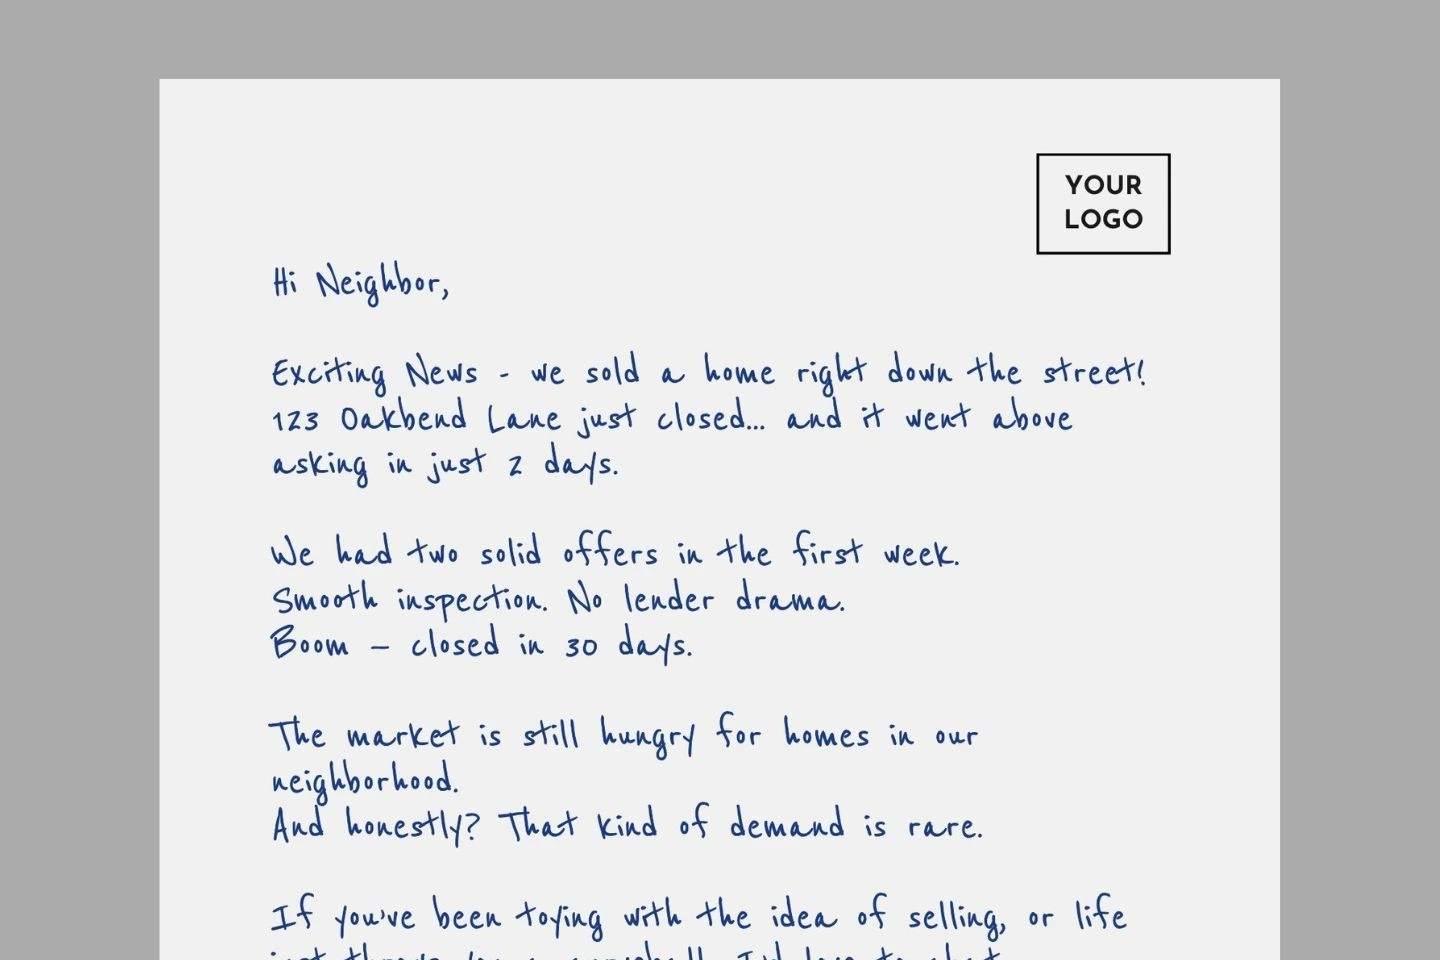 YOUR
LOGO
Hi Neighbor,
Exciting News - we sold a home right down the street!
123 Oakbend Lane just closed... and it went above
asking in just 2 days.
We had two solid offers in the first week.
Smooth inspection. No lender drama.
Boom – closed in 30 days.
The market is still hungry for homes in our
neighborhood.
And honestly? That kind of demand is rare.
If you've been toying with the idea of selling, or life